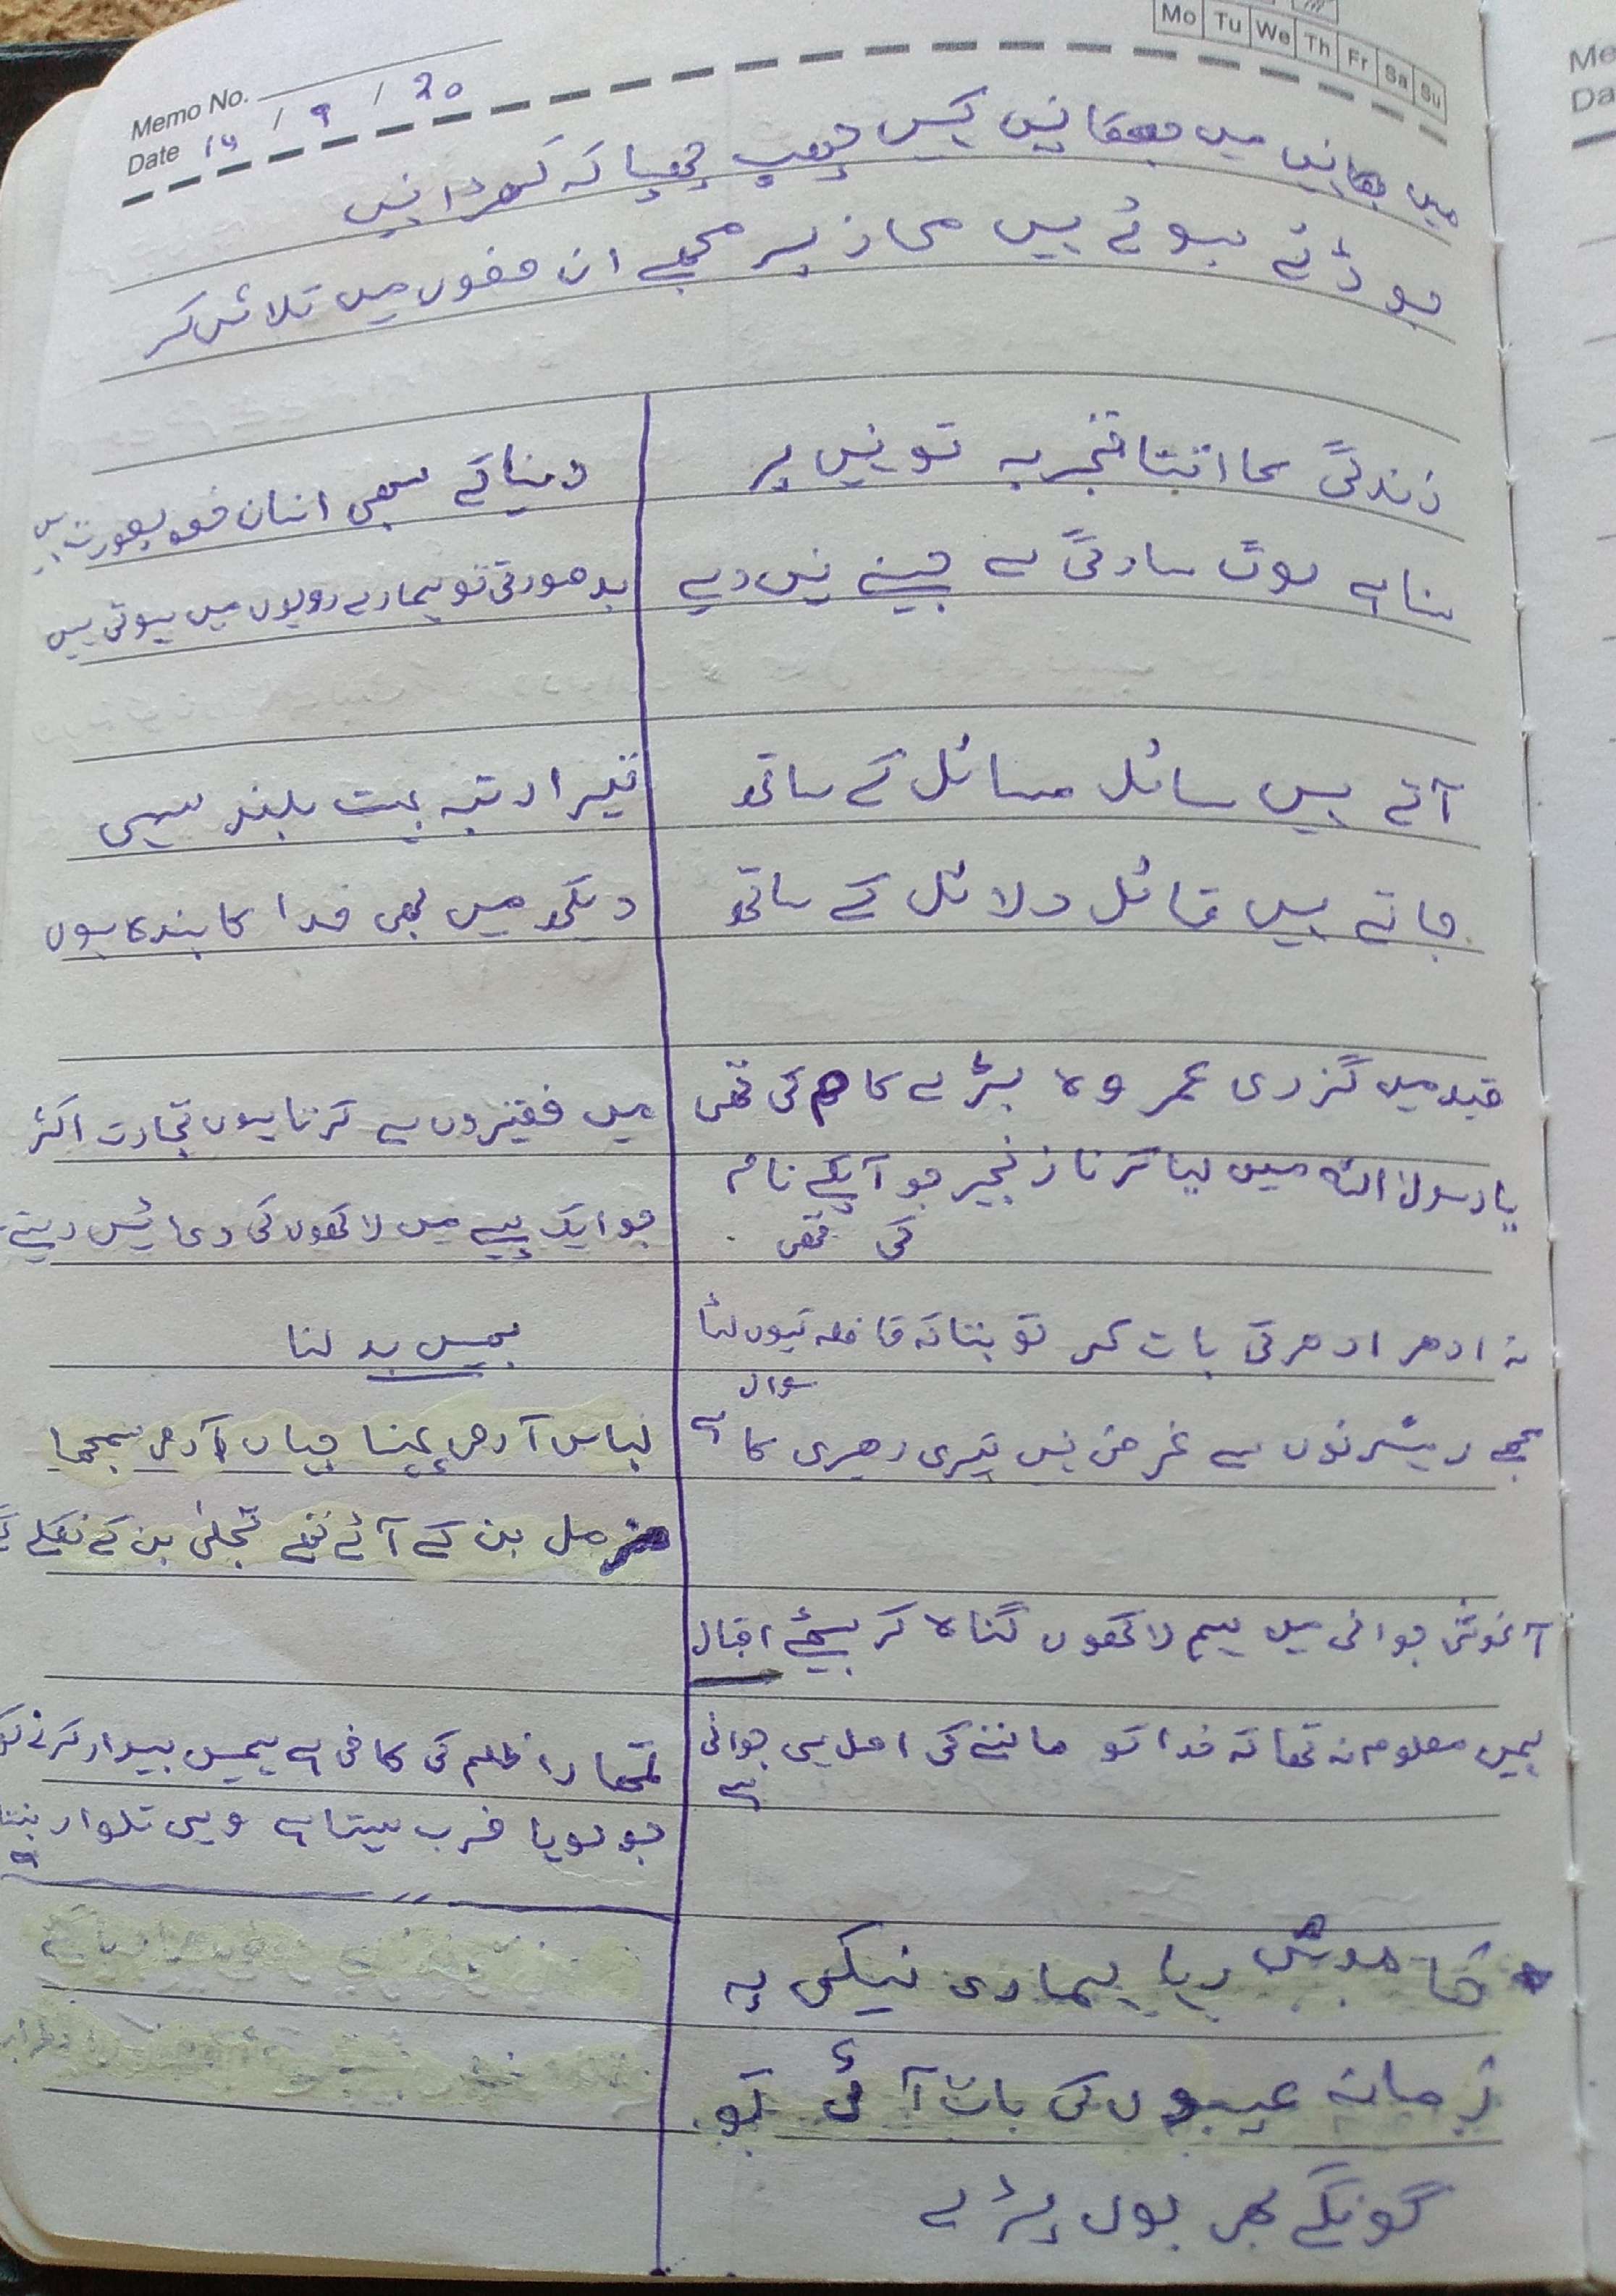 Mo Tu We Th Fr Sa Su
Memo No.
Date 14 / 9 / 20
میں میں نہیں کہیں چھپ چھپا کہ کھڑا نہیں
جو ڈٹے ہوئے ہیں محاز پر مجھے ان صفوں میں تلاش کر
زندگی کا اتنا تجربہ تو نہیں پر
سنا ہے لوگ سادگی سے جینے نہیں دیے
آتے ہیں سائل مسائل کے ساتھ
جاتے ہیں قائل دلائل کے ساتھ
قید میں گزری عمر وہ بڑے کام کی تھی
یا رسول اللہ میں کیا کرتا زنجیر جو آپکے نام
کی تھی
نہ ادھر ادھر کی بات کر تو بتا کہ قافلہ کیوں لٹا
مجھے رہزنوں سے غرض نہیں تیری رہبری کا سوال ہے
آغوش جوانی میں ہم لاکھوں گناہ کر بیٹھے اقبال
ہمیں معلوم نہ تھا کہ خدا کو ماننے کی اصل ہی جوانی
ہے
خاموش رہا ہماری نیکی پہ
زمانہ عیبوں کی بات آئی تو
گونگے بھی بول پڑے
دنیا کے سبھی انسان خوبصورت ہیں
بدصورتی تو ہمارے رویوں میں ہوتی ہیں
تیرا رتبہ بہت بلند سہی
دیکھ میں بھی خدا کا بندہ ہوں
میں فقیروں سے کرتا ہوں تجارت اکثر
جو ایک پیسے میں لاکھوں کی دعائیں دیتے
بھیس بدلنا
لباس آدمی پہنا جہاں آدمی سمجھا
مزمل بن کے آئے تھے تجلی بن کے نکلے گے
تمھارا ظلم کی کافی ہے ہمیں بیدار کرنے کو
جو لوہا ضرب سہتا ہے وہی تلوار بنتا
ہے